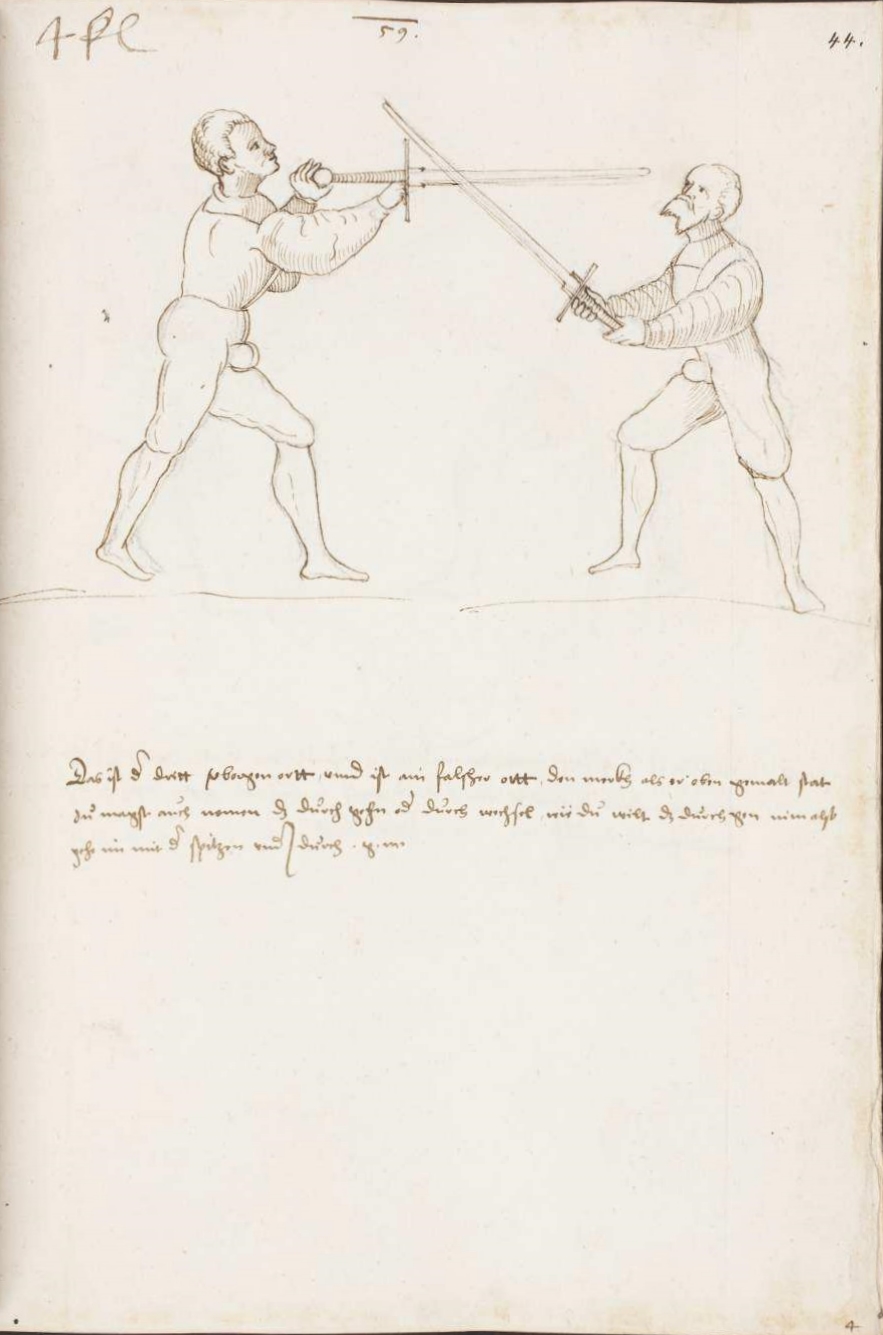 59.
44.
Das ist d dritt verborgen ortt vnnd ist ain falscher ortt, den merkh als er oben gemalt stat
du magst auch nemen dz durch gehn od durch wechsel, wie du wilt dz durch gen nim also
gehe im mit d spitzen vnd durch
4